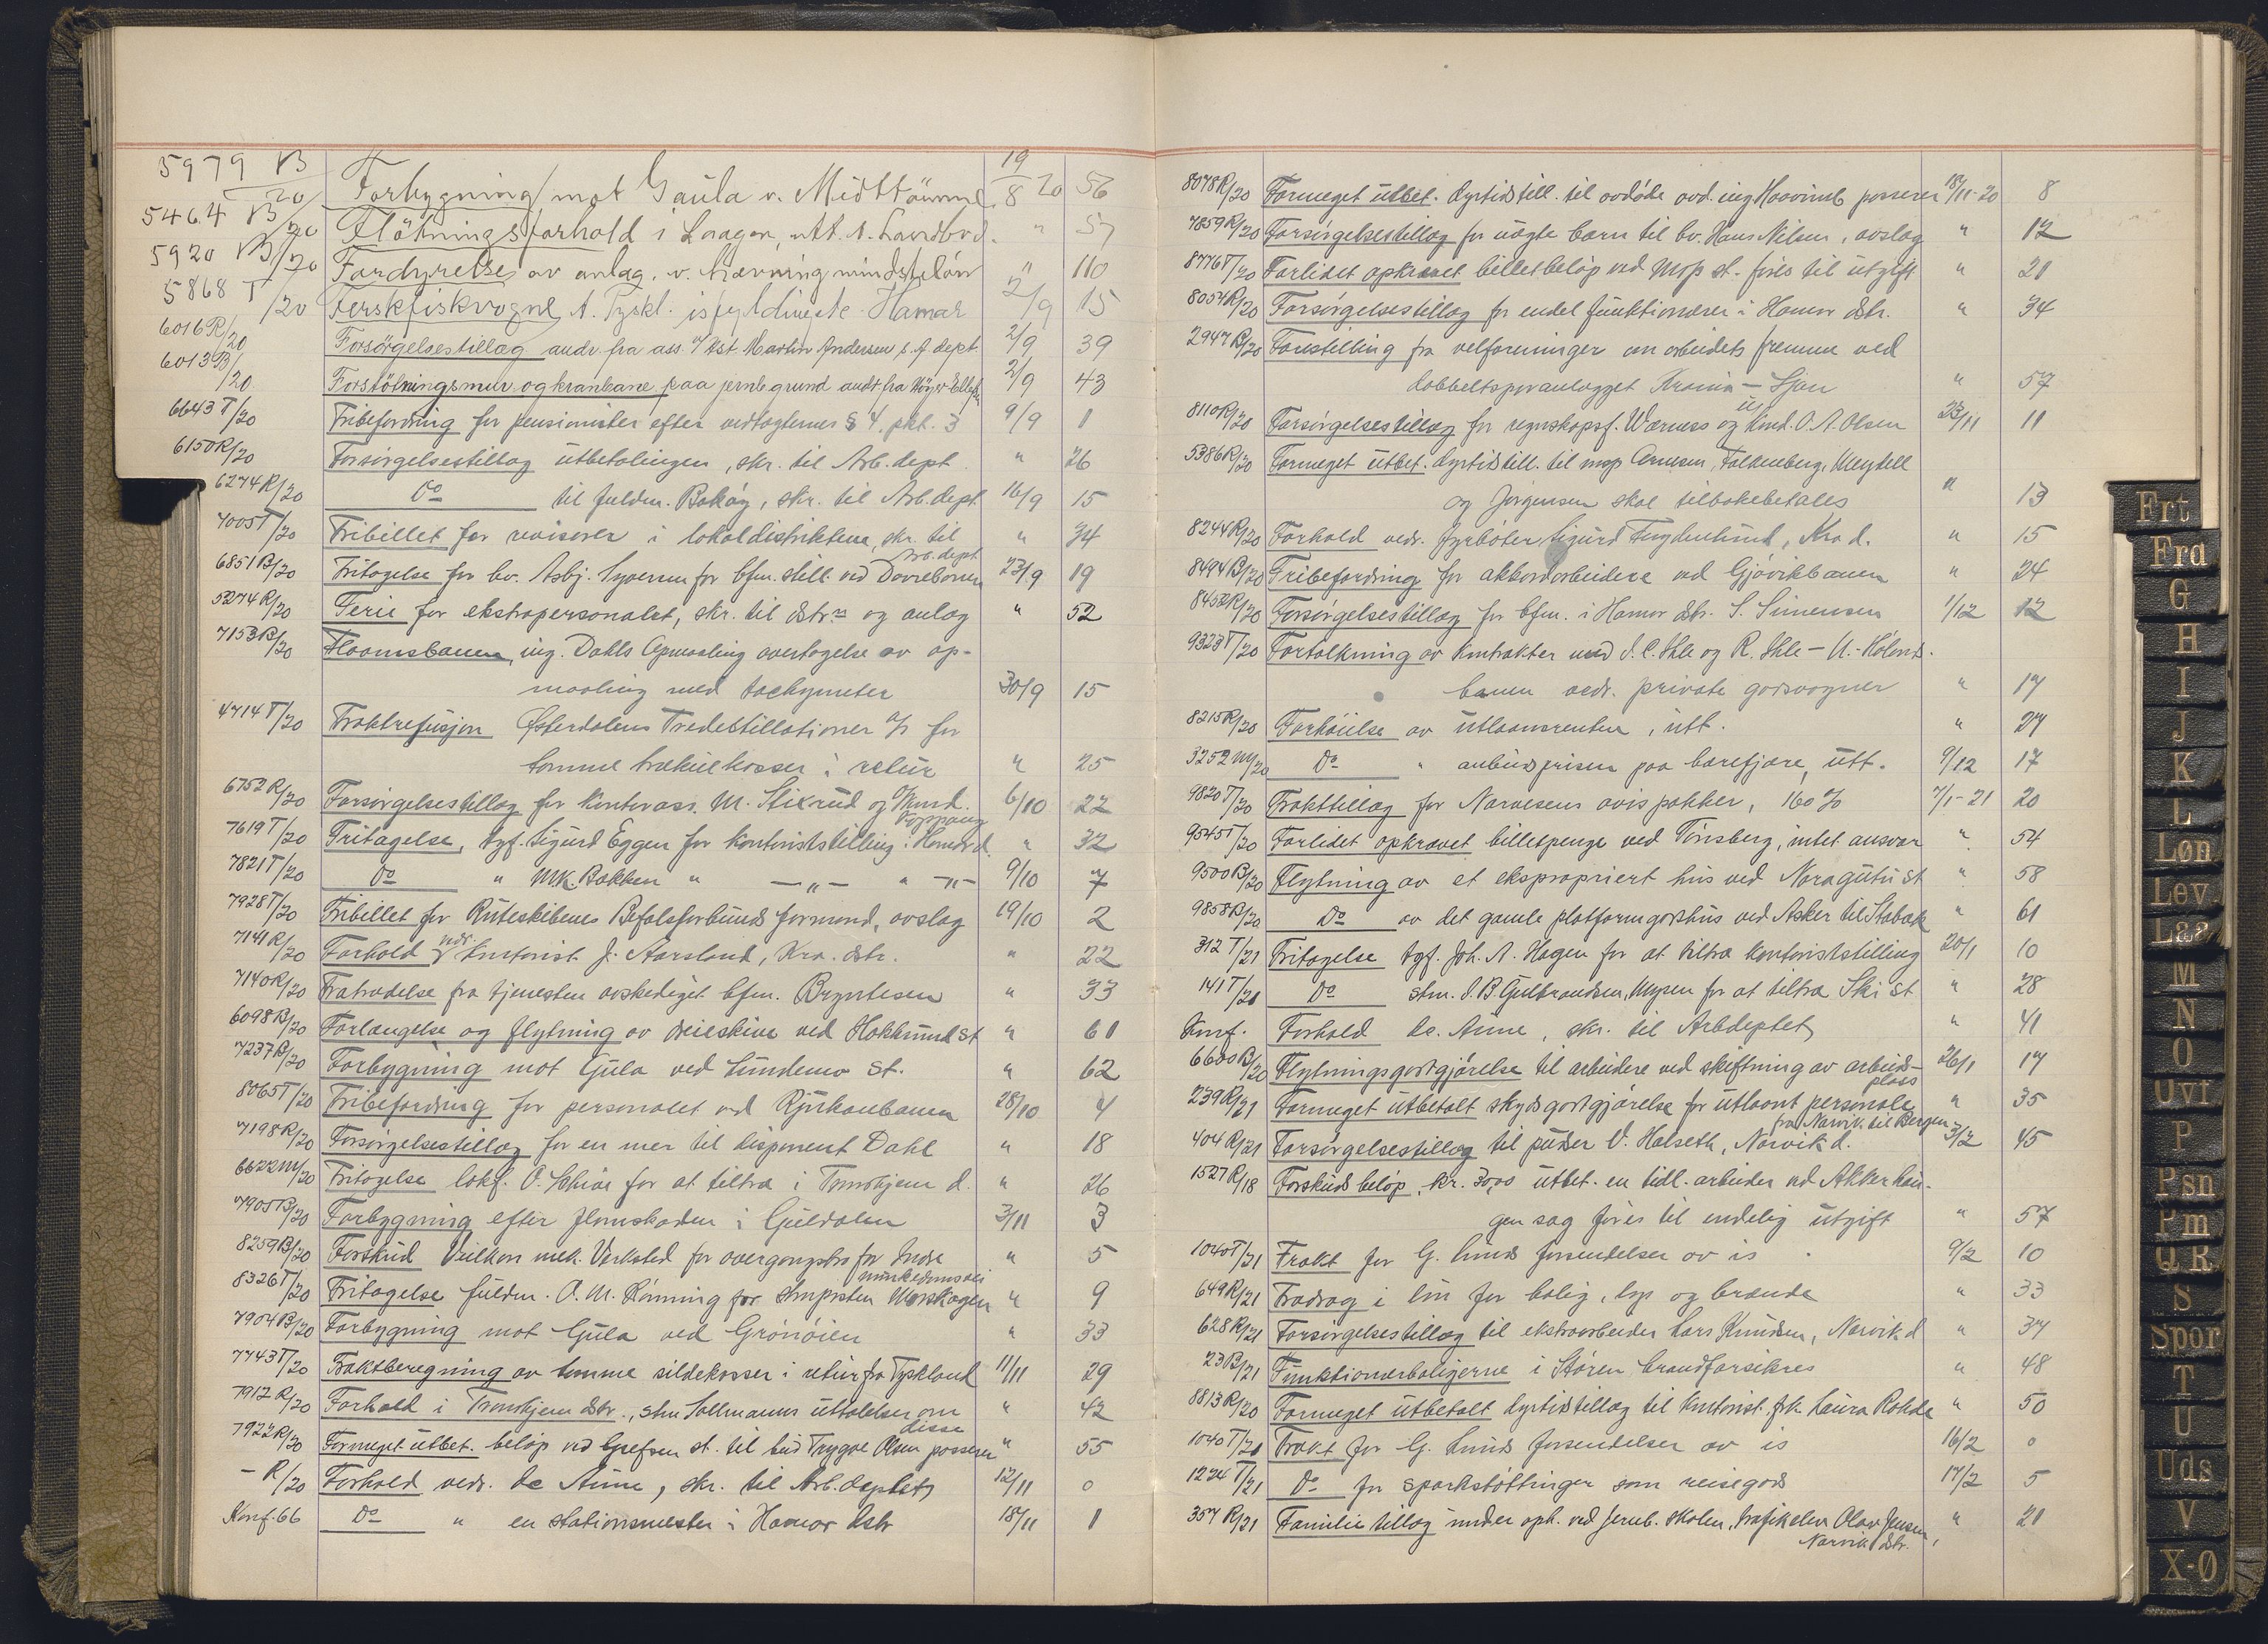 5979 B/20 Forbygning mot Gaula v. Midttømme 19/8 20 56
5464 B/20 Fløtningsforhold i Laagen, utt. t. Landbrd. " 57
5920 B/20 Fordyrelse av anlag. v. hævning mindsteløn " 110
5868 T/20 Ferskfiskvogne t. Tyskl. isfyldingste Hamar 2/9 15
6016 R/20 Forsørgelsestillæg andr. fra ass. v/ Øst. Martin Andersen s. f. dept 2/9 39
6013 B/20 Forstøtningsmur og kranbane paa jernb.grund andr fra Høyer-Ellefsen 2/9 43
6643 T/20 Fribefordring for pensionister efter vedtægternes § 4. pkt. 3 9/9 1
6150 R/20 Forsørgelsestillæg utbetalingen, skr. til Arb. dept " 26
6274 R/20 Do til fuldm. Bakøy, skr. til Arb. dept. 16/9 15
7005 T/20 Fribillet for revisorer i lokaldistriktene, skr. til Arb. dept " 34
6851 B/20 Fritagelse for bv. Asbj. Syversen for bfm. still. ved Dovrebanen 23/9 19
5274 R/20 Ferie for ekstrapersonalet, skr. til dstr. og anlæg " 52
7153 B/20 Flaamsbanen, ing. Dahls Opmaaling overtagelse av op-
maaling med tachymeter 30/9 15
4714 T/20 Fraktrefusjon Østerdalens Trædestillationer A/S for
tomme trækulkasser i retur " 25
6752 R/20 Forsørgelsestillæg for kontorass. M. Stixrud og Mmd. Koppang 6/10 22
7619 T/20 Fritagelse, tgf. Sigurd Eggen for kontoriststilling i Hamar d. " 32
7821 T/20 Do " MK. Bakken " —„— " —„— 9/10 7
7928 T/20 Fribillet for Ruteskibenes Befalsforbunds formand, avslag 19/10 2
7141 R/20 Forhold vedr. kontorist J. Aarsland, Kra. dstr. " 22
7140 R/20 Fratrædelse fra tjenesten avskediget bfm. Bryntesen " 33
6098 B/20 Forlængelse og flytning av dreieskive ved Hokksund st " 61
7237 B/20 Forbygning mot Gula ved Lundemo st. " 62
8065 T/20 Fribefordring for personalet ved Rjukanbanen 28/10 4
7198 R/20 Forsørgelsestillæg for en mer til disponent Dahl " 18
6622 M/20 Fritagelse lokf. O. Schiøe for at tiltræ i Trondhjem d. " 26
7905 B/20 Forbygning efter flomskaden i Guldalen 3/11 3
8259 B/20 Forskud Vulkan mek. Verksted for overgangsbro for Indre munkedamsvei " 5
8326 T/20 Fritagelse fuldm. O. M. Rønning for stmposten Morskogen " 9
7904 B/20 Forbygning mot Gula ved Grønøien " 33
7743 T/20 Fraktberegning av tomme sildekasser i retur fra Tyskland 11/11 29
7912 R/20 Forhold i Trondhjem dstr., stm Sollmanns uttalelser om disse " 42
7922 R/20 Formeget utbet. beløp ved Grefsen st. til bud Trygve Olsen passerer " 55
- R/20 Forhold vedr. de Aune, skr. til Arb. deptet 12/11 0
Konf. 66 Do " en stationsmester i Hamar dstr 18/11 1
8078 R/20 Formeget utbet. dyrtidstill. til avdøde avd. ing Haavimb passerer 18/11-20 8
7859 R/20 Forsørgelsestillæg for uægte barn til bv. Hans Nilsen, avslag " 12
8776 T/20 Forlidet opkrævet billetbeløp ved Moss st. føres til utgift " 21
8054 R/20 Forsørgelsestillæg for endel funktionærer i Hamar dstr. " 34
2947 B/20 Forestilling fra velforeninger om arbeidets fremme ved
dobbeltsporanlægget Kr.ania — Ljan " 57
8110 R/20 Forsørgelsestillæg for regnskapsf. Wærness og kond. O. A. Olsen 23/11 11
5386 R/20 Formeget utbet. dyrtidstill. til msp Arnesen, Falkenberg, Meydell
og Jørgensen skal tilbakebetales " 13
8244 R/20 Forhold vedr. fyrbøter Sigurd Fugdenlund, Kra d. " 15
8494 B/20 Fribefordring for akkordarbeidere ved Gjøvikbanen " 24
8452 R/20 Forsørgelsestillæg for bfm. i Hamar dstr. S. Simensen 1/12 12
9323 T/20 Fortolkning av kontrakter med J. C. Ihle og R. Ihle — U.-Hølands-
banen vedr. private godsvogner " 17
8215 R/20 Forhøielse av utlaansrenten, utt. " 27
3252 M/20 Do " anbudsprisen paa bærefjære, utt. 9/12 17
9820 T/20 Frakttillæg for Narvesens avispakker, 160 % 7/1-21 20
9545 T/20 Forlidet opkrævet billetpenge ved Tønsberg, intet ansvar " 54
9500 B/20 Flytning av et ekspropriert hus ved Noragutu st " 58
9858 B/20 Do av det gamle platformgodshus ved Asker til Stabæk " 61
312 T/21 Fritagelse tgf. Joh. A. Hagen for at tiltræ kontoriststilling 20/1 10
141 T/21 Do stm. J. B. Gulbrandsen, Mysen for at tiltræ Ski st " 28
Konf. Forhold de. Aune, skr. til Arbdeptet " 41
6600 B/20 Flytningsgodtgjørelse til arbeidere ved skiftning av arbeids-
plass 26/1 17
239 R/21 Formeget utbetalt skydsgodtgjørelse for utlaant personale fra Narvik til Bergen " 35
404 R/21 Forsørgelsestillæg til pudser V. Halseth, Narvik d. 3/2 45
1527 R/18 Forskudsbeløp, kr. 30,00 utbet. en tidl. arbeider ved Akkerhau-
gen sag føres til endelig utgift " 57
1040 T/21 Frakt for G. Lunds forsendelser av is 9/2 10
649 R/21 Fradrag i løn for bolig, lys og brænde " 33
628 R/21 Forsørgelsestillæg til ekstraarbeider Lars Knudsen, Narvik d " 37
23 B/21 Funktionærboligerne i Støren brandforsikres " 48
8813 R/20 Formeget utbetalt dyrtidstillæg til kontorist frk. Laura Rohde " 50
1040 T/21 Frakt for G. Lunds forsendelser av is 16/2 0
1224 T/21 Do for sparkstøttinger som reisegods 17/2 5
357 R/21 Familietillæg under oph. ved jernb. skolen, trafikelev Olav Jensen, Narvik dstr. " 21
Frt
Frd
G
H
I
J
K
L
Løn
Lev.
Laa
M
N
O
Ovf
P
Psn
Pm
Q R
S
Spor
T
U
Uds
V
X-Ø